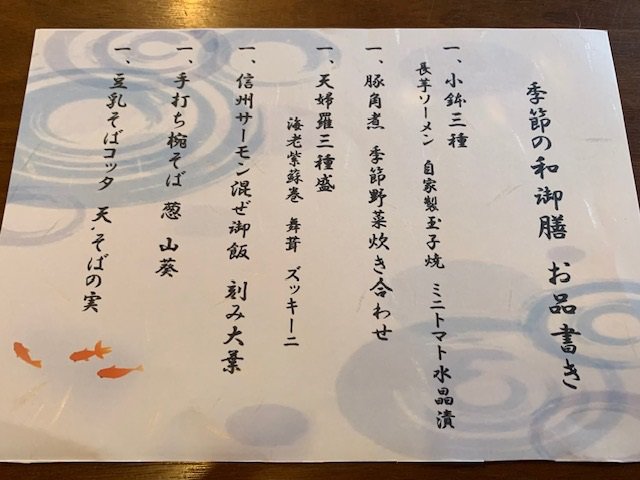 季節の和御膳 お品書き
一、小鉢三種
長芋ソーメン 自家製玉子焼 ミニトマト水晶漬
一、豚角煮 季節野菜炊き合わせ
一、天婦羅三種盛
海老紫蘇巻 舞茸 ズッキーニ
一、信州サーモン混ぜ御飯 刻み大葉
一、手打ち椀そば 葱 山葵
一、豆乳そばコッタ 天・そばの実